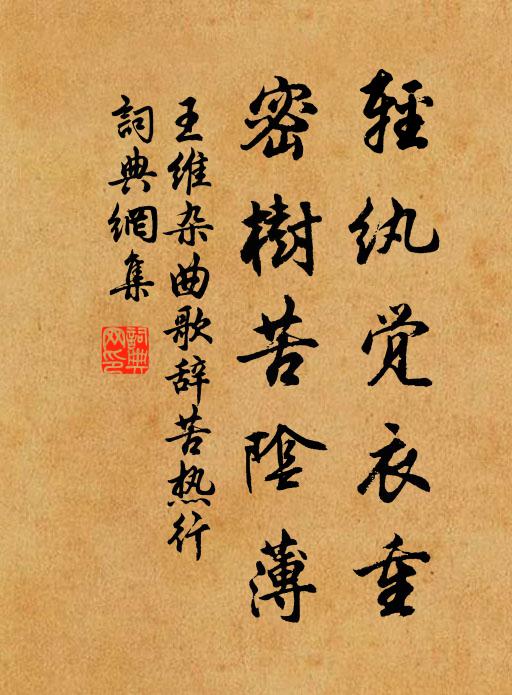 輕紈觉衣重
密樹苦陰薄
王维杂曲歌辞苦热行
詞典網集
詞典网印